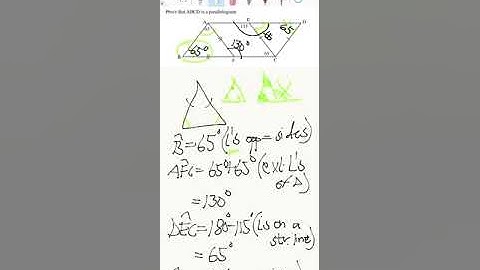 Prove that ABCD is a parallelogram
A E D
65° 115° 65
65° 130° 65
B F C
B̂ = 65° (∠'s opp = sides)
AF̂C = 65° + 65° (ext ∠'s of Δ)
= 130°
DÊC = 180° - 115° (∠s on a str. line)
= 65°